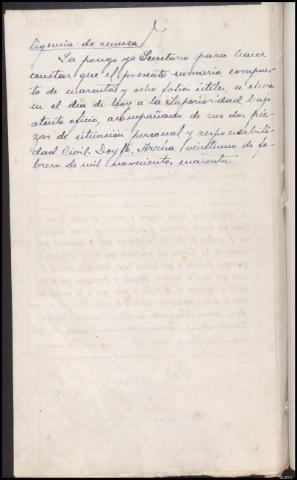 ligencia de remesa/
La pongo yo Secretario para hacer
constar que el presente sumario, compues-
to de cuarenta y ocho folios útiles, se eleva
en el día de hoy a la Superioridad bajo
atento oficio, acompañado de sus dos pie-
zas de situación personal y responsabili-
dad Civil. Doy fé. veintiuno de fe-
brero de mil novecientos cuarenta.